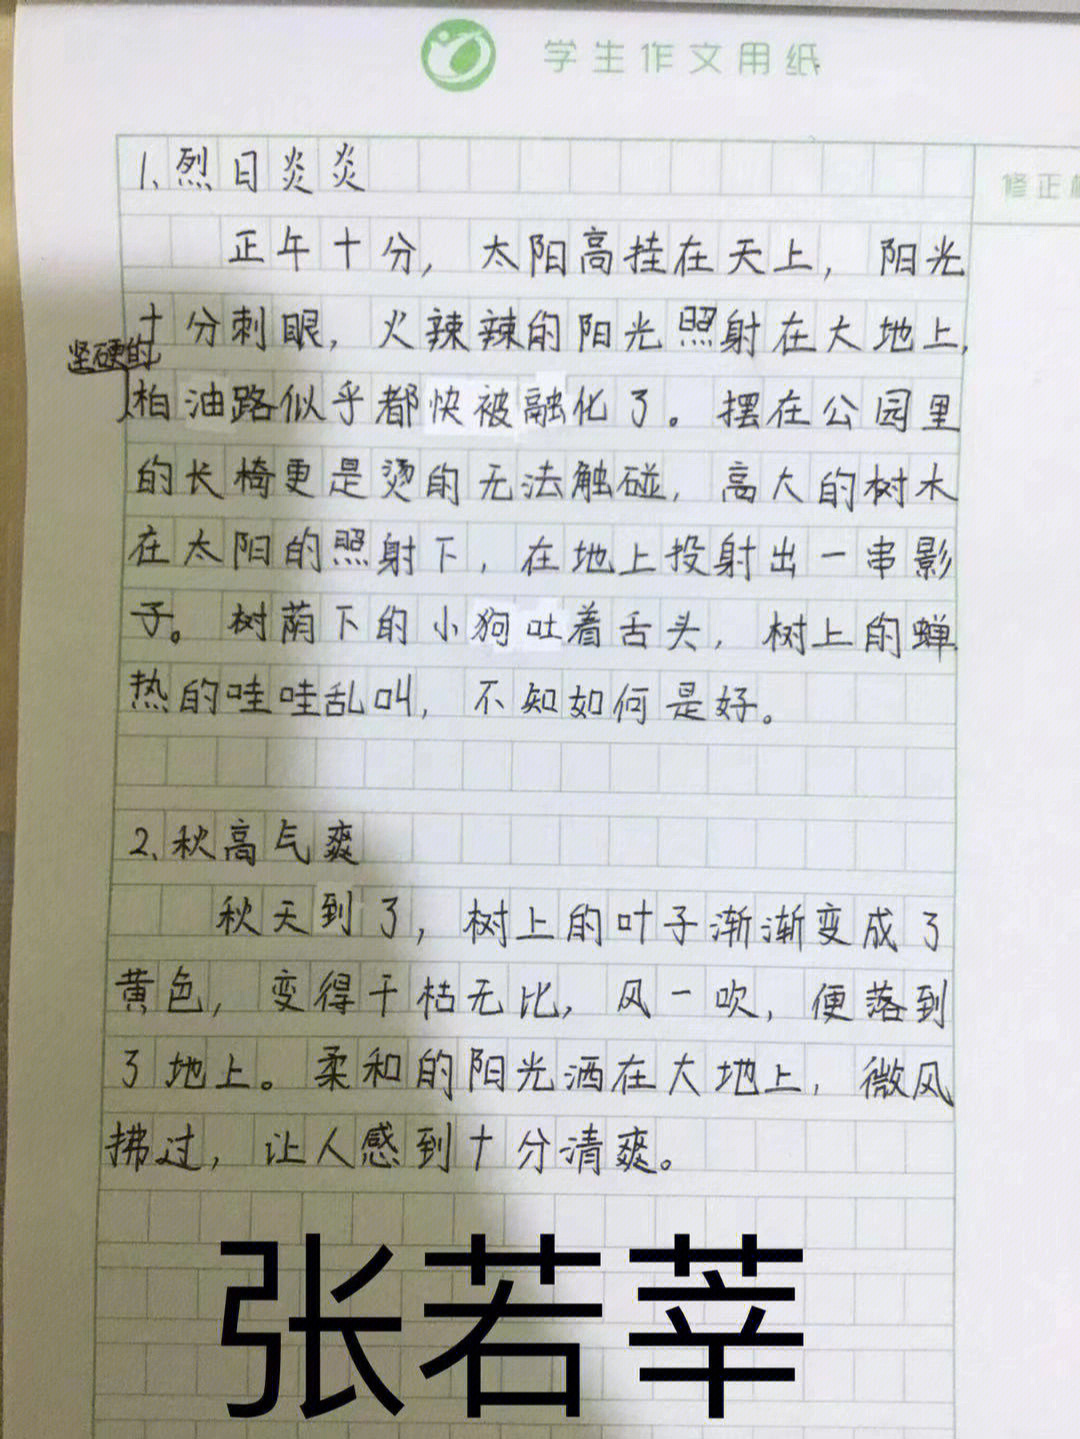 学生作文用纸
修正
1、烈日炎炎
正午十分，太阳高挂在天上，阳光
十分刺眼，火辣辣的阳光照射在大地上，
坚硬的
柏油路似乎都快被融化了。摆在公园里
的长椅更是烫的无法触碰，高大的树木
在太阳的照射下，在地上投射出一串影
子。树荫下的小狗吐着舌头，树上的蝉
热的哇哇乱叫，不知如何是好。
2、秋高气爽
秋天到了，树上的叶子渐渐变成了
黄色，变得干枯无比，风一吹，便落到
了地上。柔和的阳光洒在大地上，微风
拂过，让人感到十分清爽。
张若莘